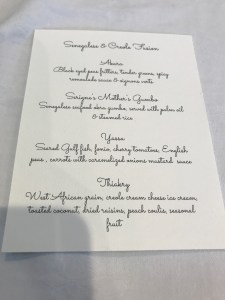 Senegalese & Creole Fusion
Akara
Black eyed peas fritters, tender greens, spicy
remoulade sauce &
Serigne's Mother's Gumbo
Senegalese seafood okra gumbo, served with palm oil
& steamed rice
Yassa
Seared Gulf fish, fonio, cherry tomatoes, English
peas, carrots with caramelized onions mustard sauce
Thiakry
West African grain, creole cream cheese ice cream,
toasted coconut, dried raisins, peach coulis, seasonal
fruit